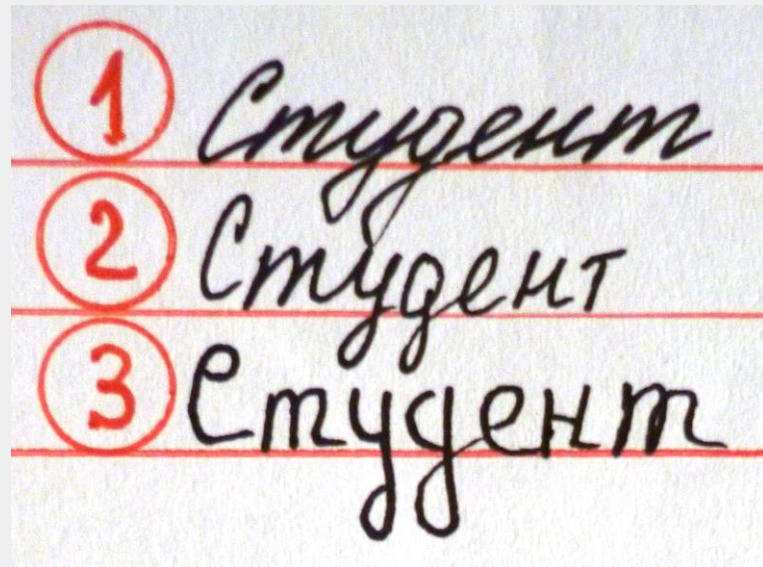 1 Студент
2 Студент
3 Студент